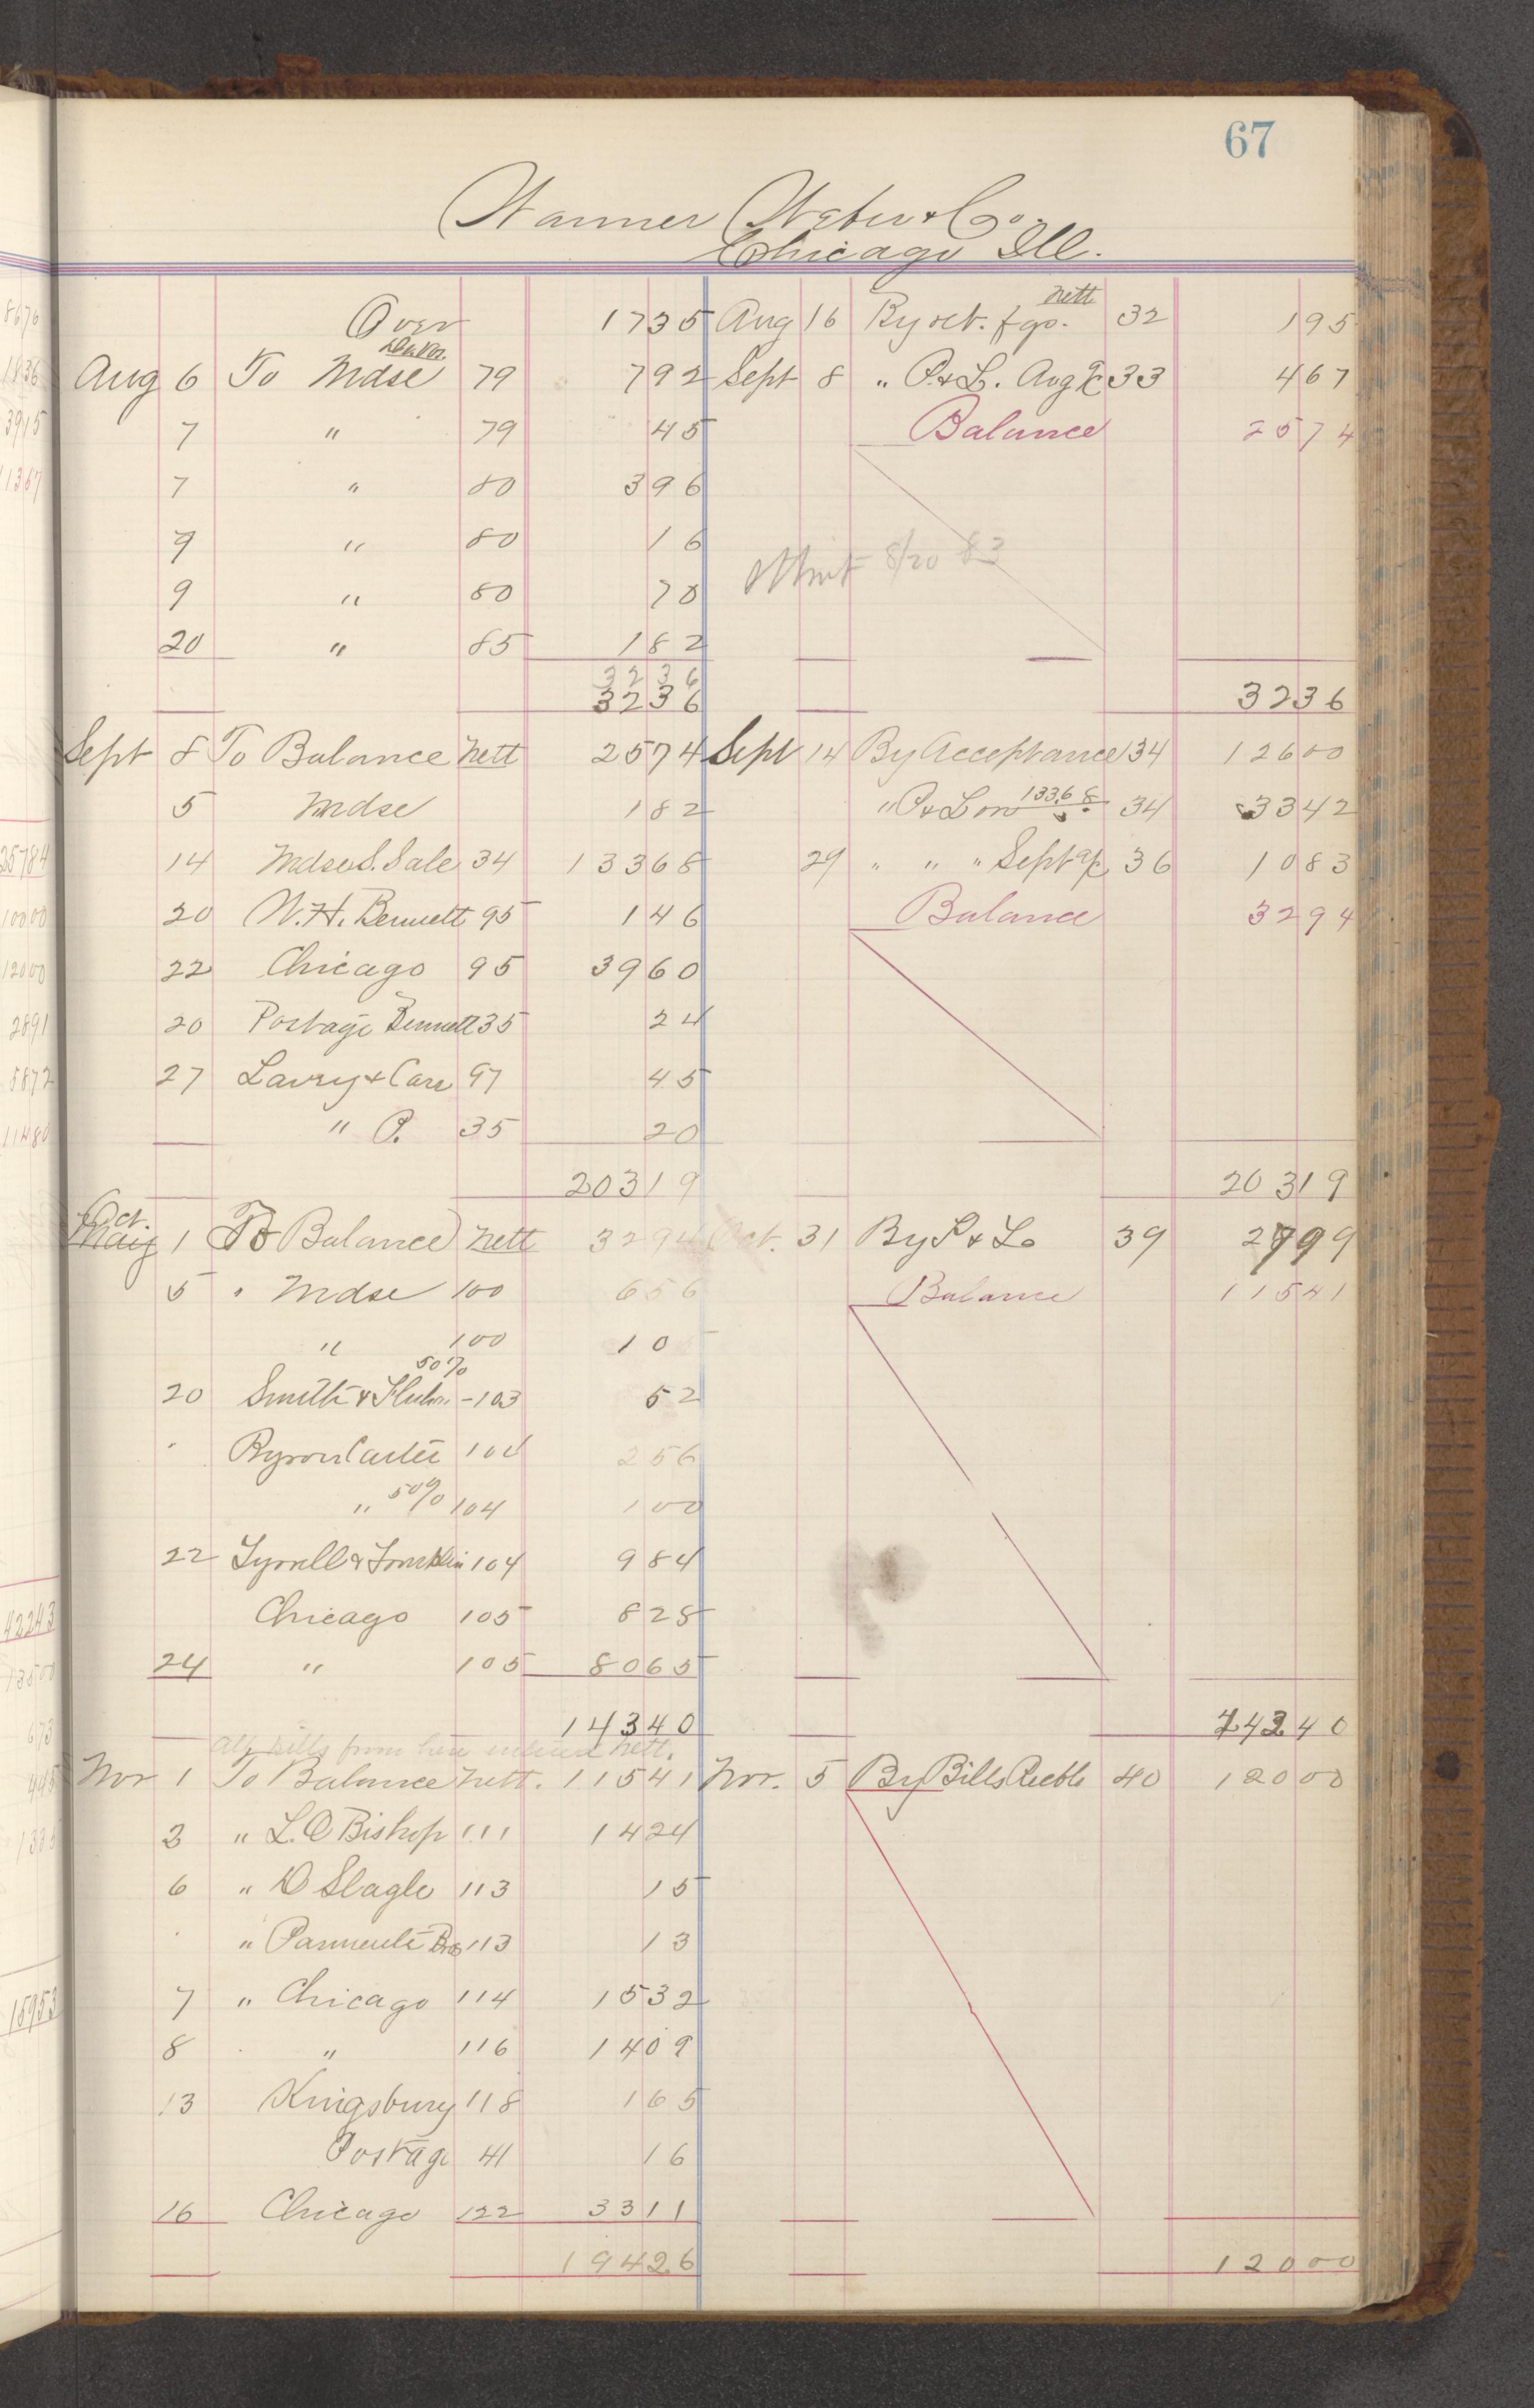 67
Warner Weber & Co.
Chicago Ill.
Over 1735 Aug 16 By ret. fgs. nett 32 195
Aug 6 To Mdse 79 792 Sept 8 " P. & L. Aug a/c 33 467
7 " 79 45 Balance 2574
7 " 80 396
9 " 80 16
8/20 83
9 " 80 70
20 " 85 182
3236
3236 3236
Sept 8 To Balance nett 2574 Sept 14 By Acceptance 34 12600
5 Mdse 182 " P & L on 13368 34 3342
14 Mdse S. Sale 34 13368 29 " " " Sept a/c 36 1083
20 W. H. Bennett 95 146 Balance 3294
22 Chicago 95 3960
20 Postage Bennett 35 24
27 Lavry & Carr 97 45
" P. 35 20
20319 20319
Oct.
1 To Balance nett 3294 Oct. 31 By P & L 39 2799
5 " Mdse 100 656 Balance 11541
" 100 105
50%
20 Smith & 103 52
" Byron Carter 104 256
" 50% 104 100
22 Tyrrell & 104 984
Chicago 105 828
24 " 105 8065
14340 14340
All bills from here entered nett.
Nov 1 To Balance nett. 11541 Nov. 5 By Bills Recble 40 12000
2 " L. O Bishop 111 1424
6 " D Slagle 113 15
" Parmente Bros 113 13
7 " Chicago 114 1532
8 " 116 1409
13 Kingsbury 118 165
Postage 41 16
16 Chicago 122 3311
19426 12000